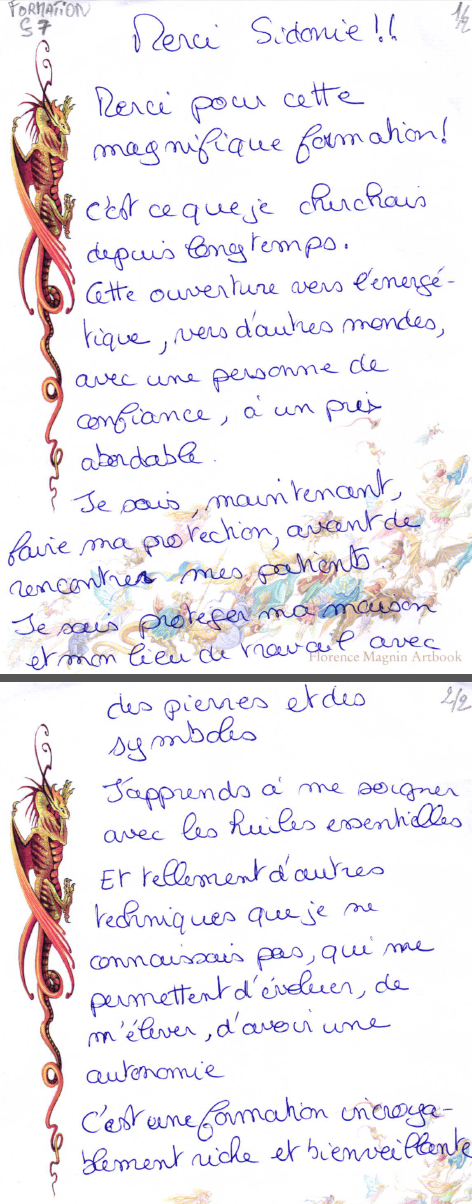 FORMATION
S7
1/2
Merci Sidonie !!
Merci pour cette
magnifique formation!
c'est ce que je cherchais
depuis longtemps.
Cette ouverture vers l'énergé-
tique, vers d'autres mondes,
avec une personne de
confiance, à un prix
abordable.
Je sais, maintenant,
faire ma protection, avant de
rencontrer mes patients.
Je sais protéger ma maison
et mon lieu de travail avec
Florence Magnin Artbook
2/2
des pierres et des
symboles
J'apprends à me soigner
avec les huiles essentielles
Et tellement d'autres
techniques que je ne
connaissais pas, qui me
permettent d'évoluer, de
m'élever, d'avoir une
autonomie
C'est une formation incroya-
blement riche et bienveillante